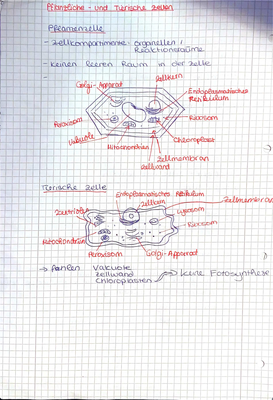 Pflanzliche - und Tierische zellen
Pflanzenzelle
- Zellkompartimente: organellen / Reaktionsräume
- Keinen leeren Raum in der Zelle
Golgi-Apparat
Zellkern
Endoplasmatisches
Retikulum
Peroxisom
Vakuole
Mitochondrien
Ribosom
Chloroplast
Zellmembran
Zellwand
Tierische Zelle
Endoplasmatisches Retikulum
Zellkern
Zellmembran
Zentriolen
Lysosom
Ribosom
Mitochondrium
Peroxisom
Golgi-Apparat
→ Fehlen Vakuole
Zellwand
Chloroplasten → keine Fotosynthese